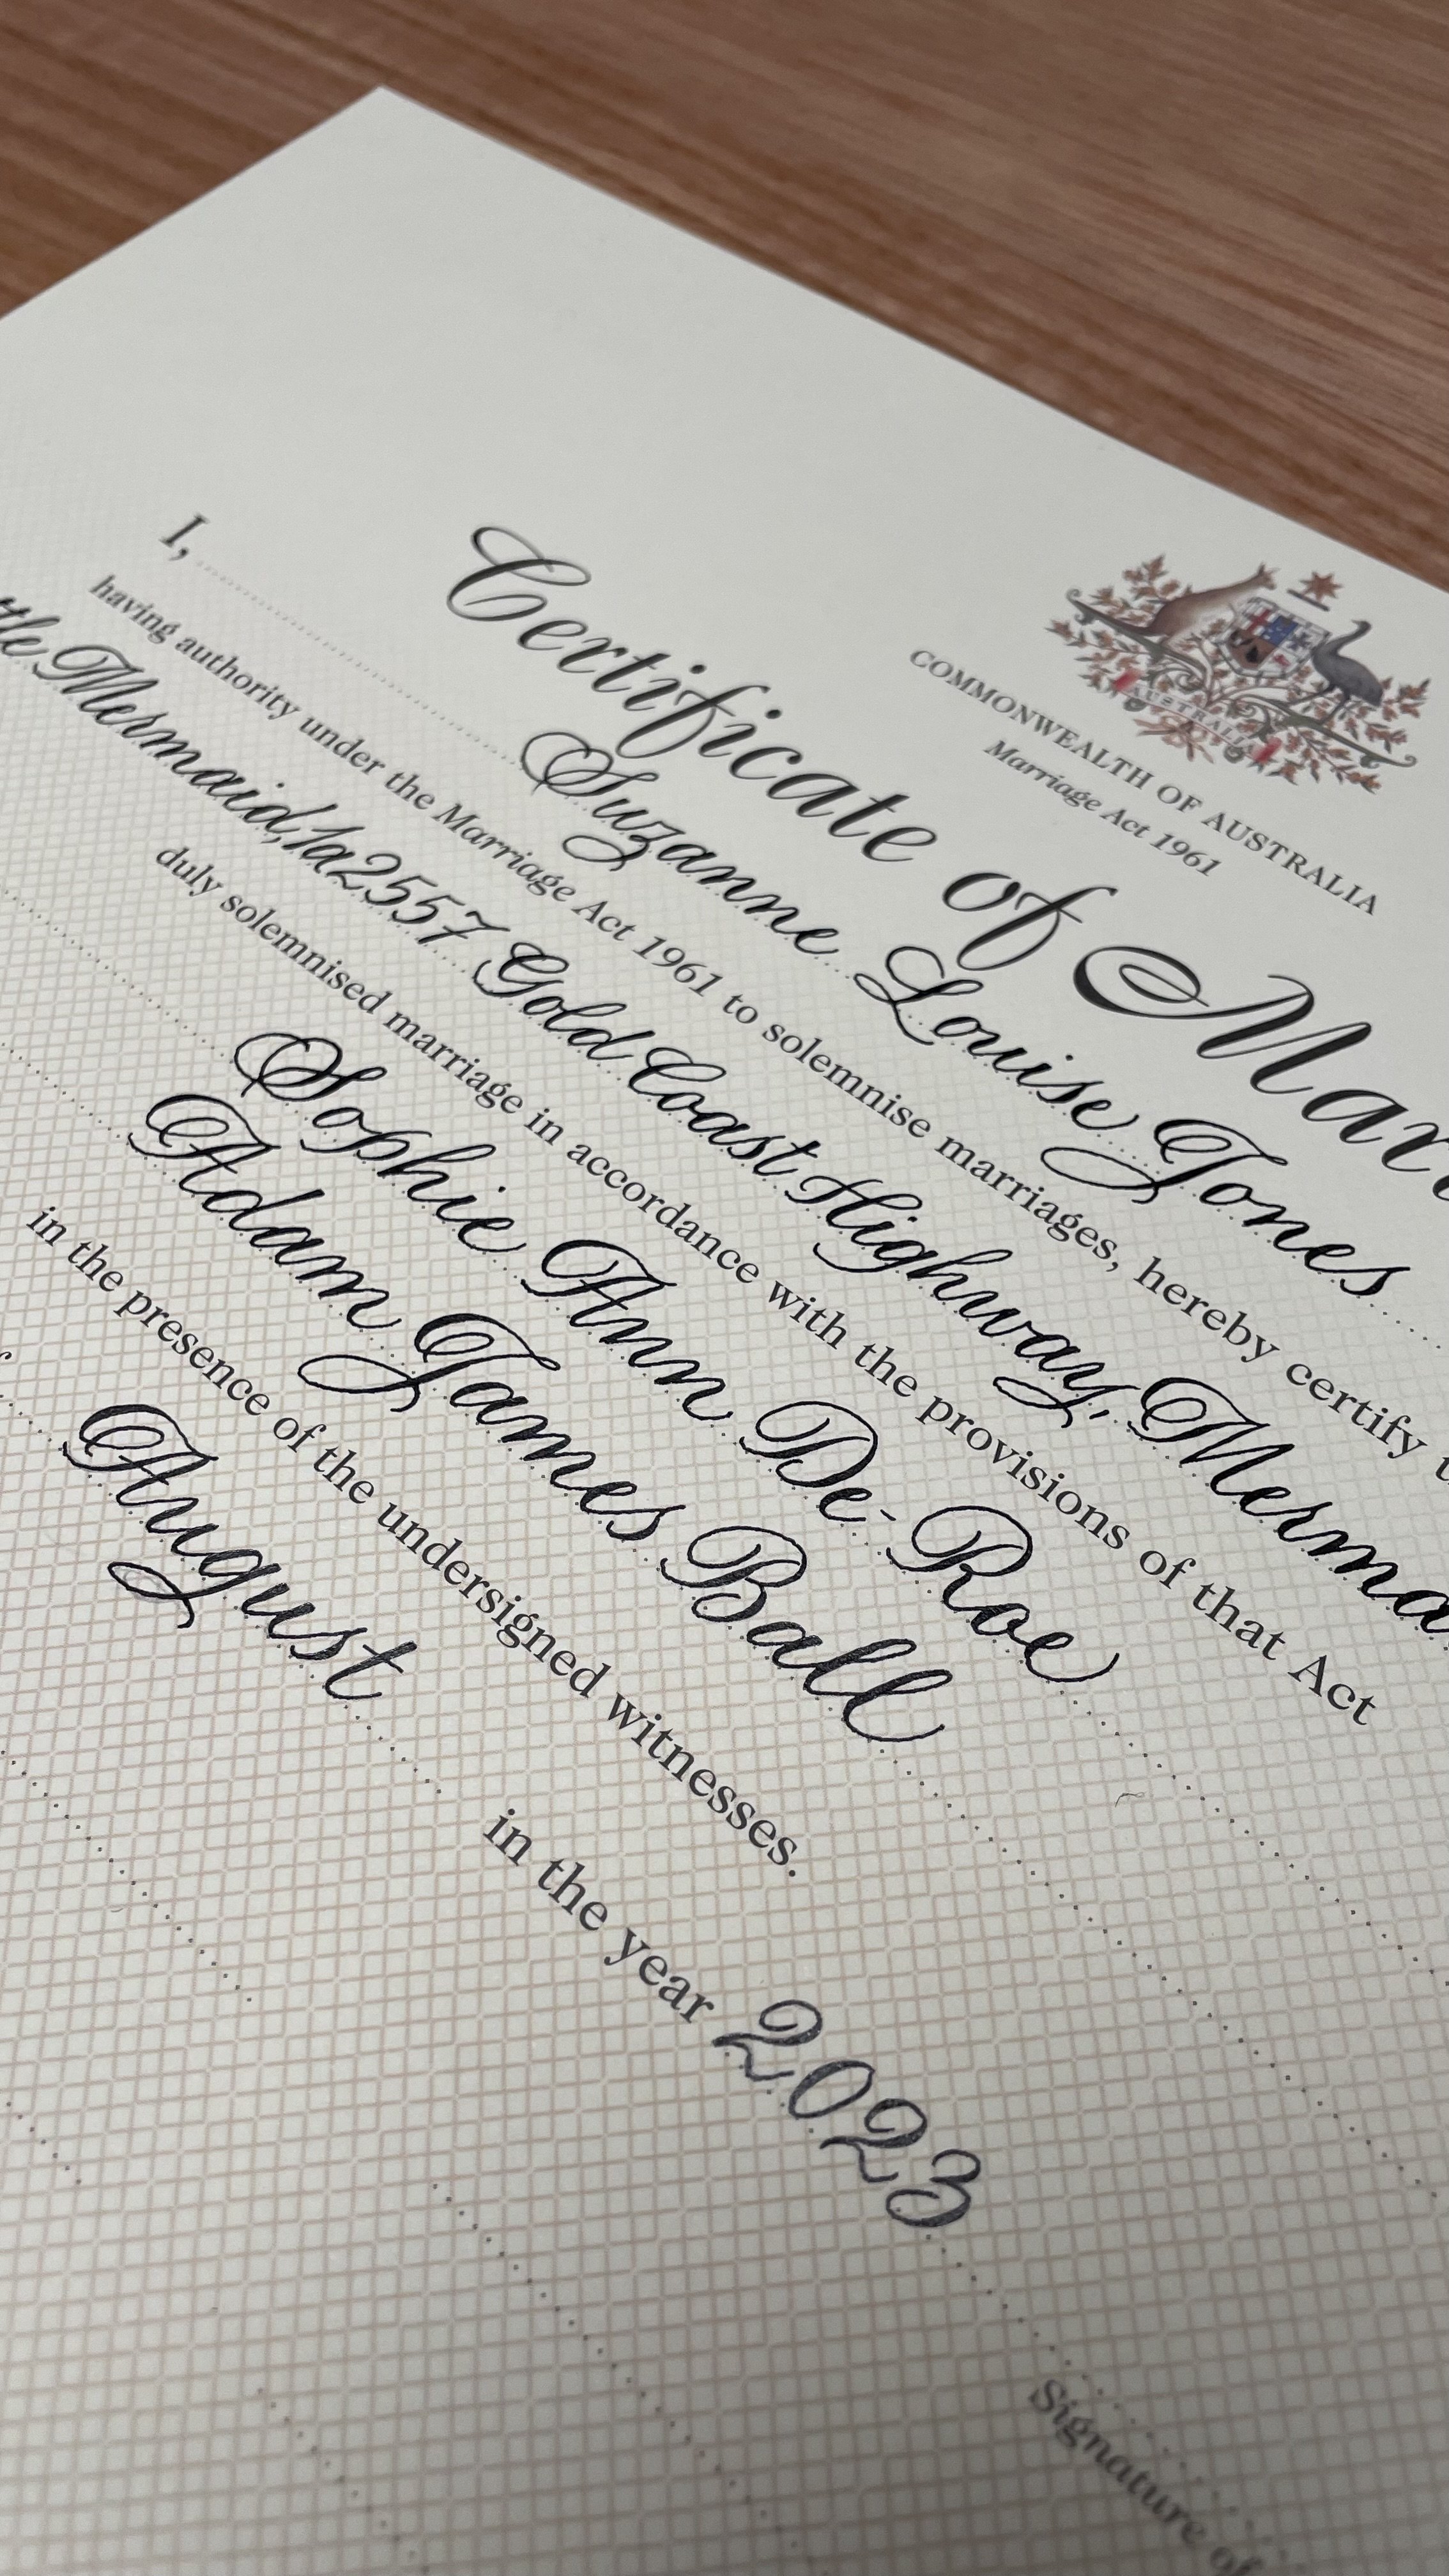 AUSTRALIA
COMMONWEALTH OF AUSTRALIA
Marriage Act 1961
Certificate of
I, Suzanne Louise Jones
having authority under the Marriage Act 1961 to solemnise marriages, hereby certify
Mermaid, 1a2557 Gold Coast Highway,
duly solemnised marriage in accordance with the provisions of that Act
Sophie Ann De-Roe
Adam James Ball
in the presence of the undersigned witnesses.
August in the year 2023
Signature of